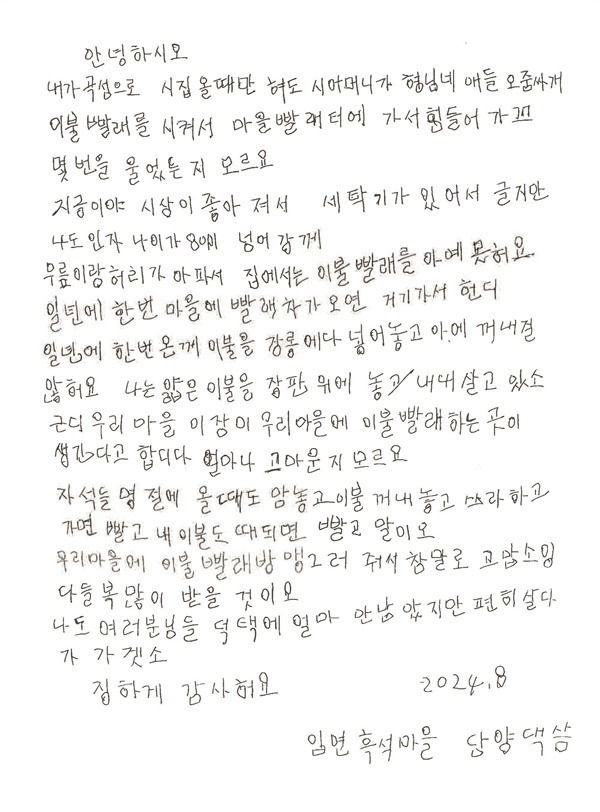 안녕하시오
내가곡성으로 시집 올때만 혀도 시어머니가 형님네 애들 오줌싸개
이불 빨래를 시켜서 마을빨래터에 가서 힘들어 가꼬
몇번을 울었는지 모르요
지금이야 시상이 좋아 져서 세탁기가 있어서 글지만
나도 인자 나이가 80이 넘어 강께
무릎이랑허리가 아파서 집에서는 이불빨래를 아예 못혀요
일년에 한번 마을에 빨래차가 오면 거기가서 헌디
일년에 한번온께 이불을 장롱에다 넣어놓고 아예 꺼내질
않혀요 나는 얇은 이불을 장판 위에 놓고 내내 살고 있소
근디 우리 마을 이장이 우리마을에 이불빨래하는 곳이
생긴다고 합디다 얼마나 고마운지 모르요
자석들 명절에 올때도 암놓고 이불 꺼내놓고 쓰라하고
가면 빨고 내이불도 때되면 빨고 말이오
우리마을에 이불빨래방 맹그러 줘서 참말로 고맙소잉
다들복많이 받을 것이오
나도 여러분님들 덕택에 얼마 안남았지만 편히살다
가 가겟소
집하게 감사혀요 2024.8
입면 흑석마을 담양댁씀